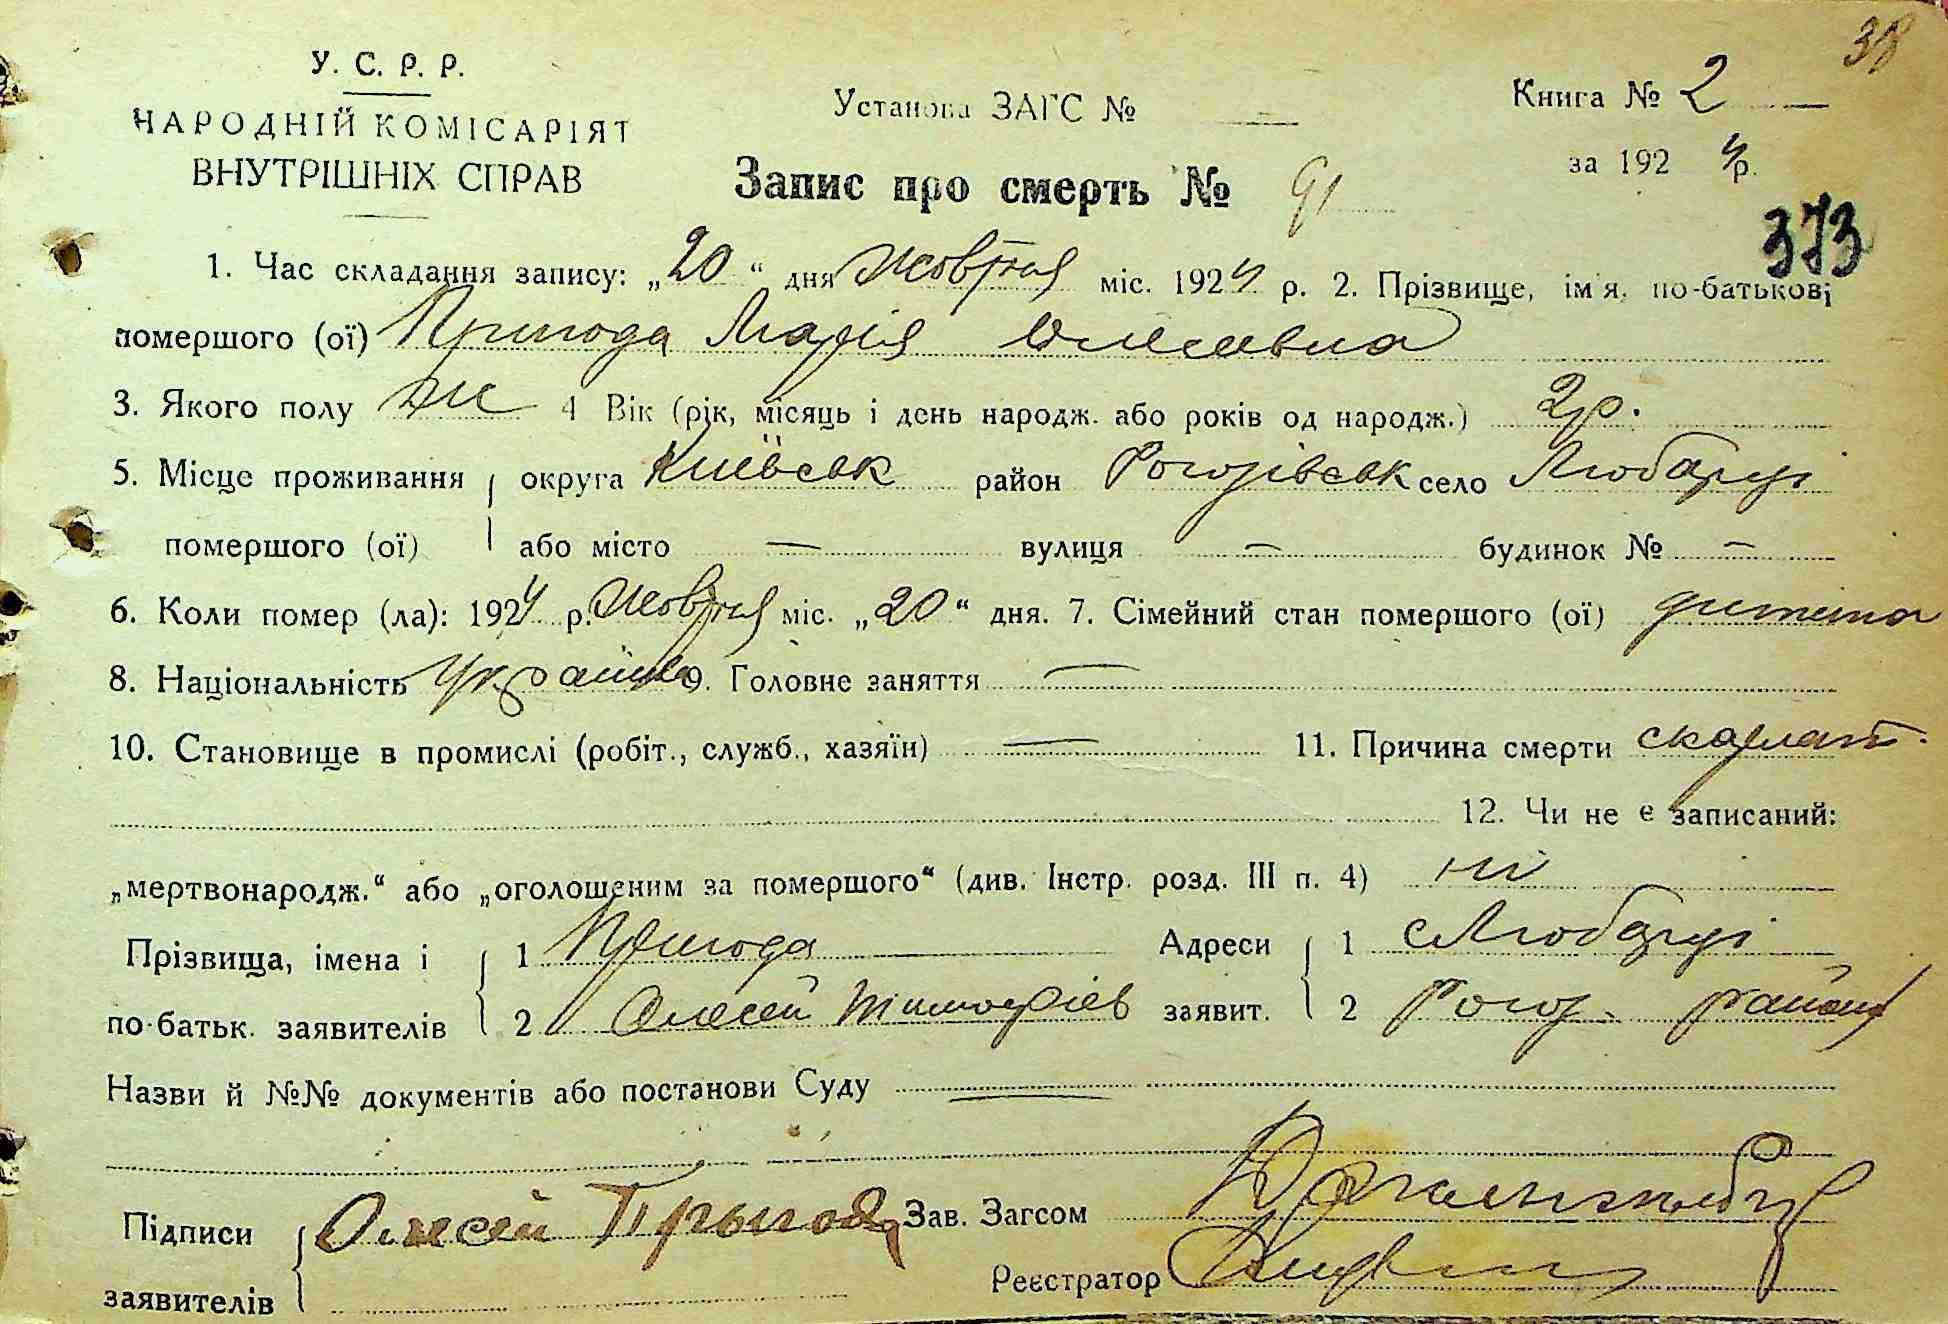 38
У. С. Р. Р.
НАРОДНІЙ КОМІСАРІЯТ
ВНУТРІШНІХ СПРАВ
Установа ЗАГС № —
Книга № 2 —
за 1924 р.
Запис про смерть № 91
373
1. Час складання запису: „20“ дня Жовтня міс. 1924 р. 2. Прізвище, імя, по-батькові
помершого (ої) Пригода Марія Олесівна
3. Якого полу жс 4 Вік (рік, місяць і день народж. або років од народж.) 2 р.
5. Місце проживання округа Київськ район Рогозівськ село Любарці
помершого (ої) або місто — вулиця — будинок № —
6. Коли помер (ла): 1924 р. Жовтня міс. „20“ дня. 7. Сімейний стан помершого (ої) дитина
8. Національність україн. 9. Головне заняття —
10. Становище в промислі (робіт., служб., хазяїн) — 11. Причина смерти скарлат.
12. Чи не є записаний:
„мертвонародж.“ або „оголошеним за помершого“ (див. Інстр. розд. III п. 4) ні
Прізвища, імена і 1 Пригода Адреси 1 с Любарці
по-батьк. заявителів 2 Олесей Тимофіев заявит. 2 Рогоз. району
Назви й №№ документів або постанови Суду —
Підписи Олесей Прыгода Зав. Загсом
заявителів Реєстратор